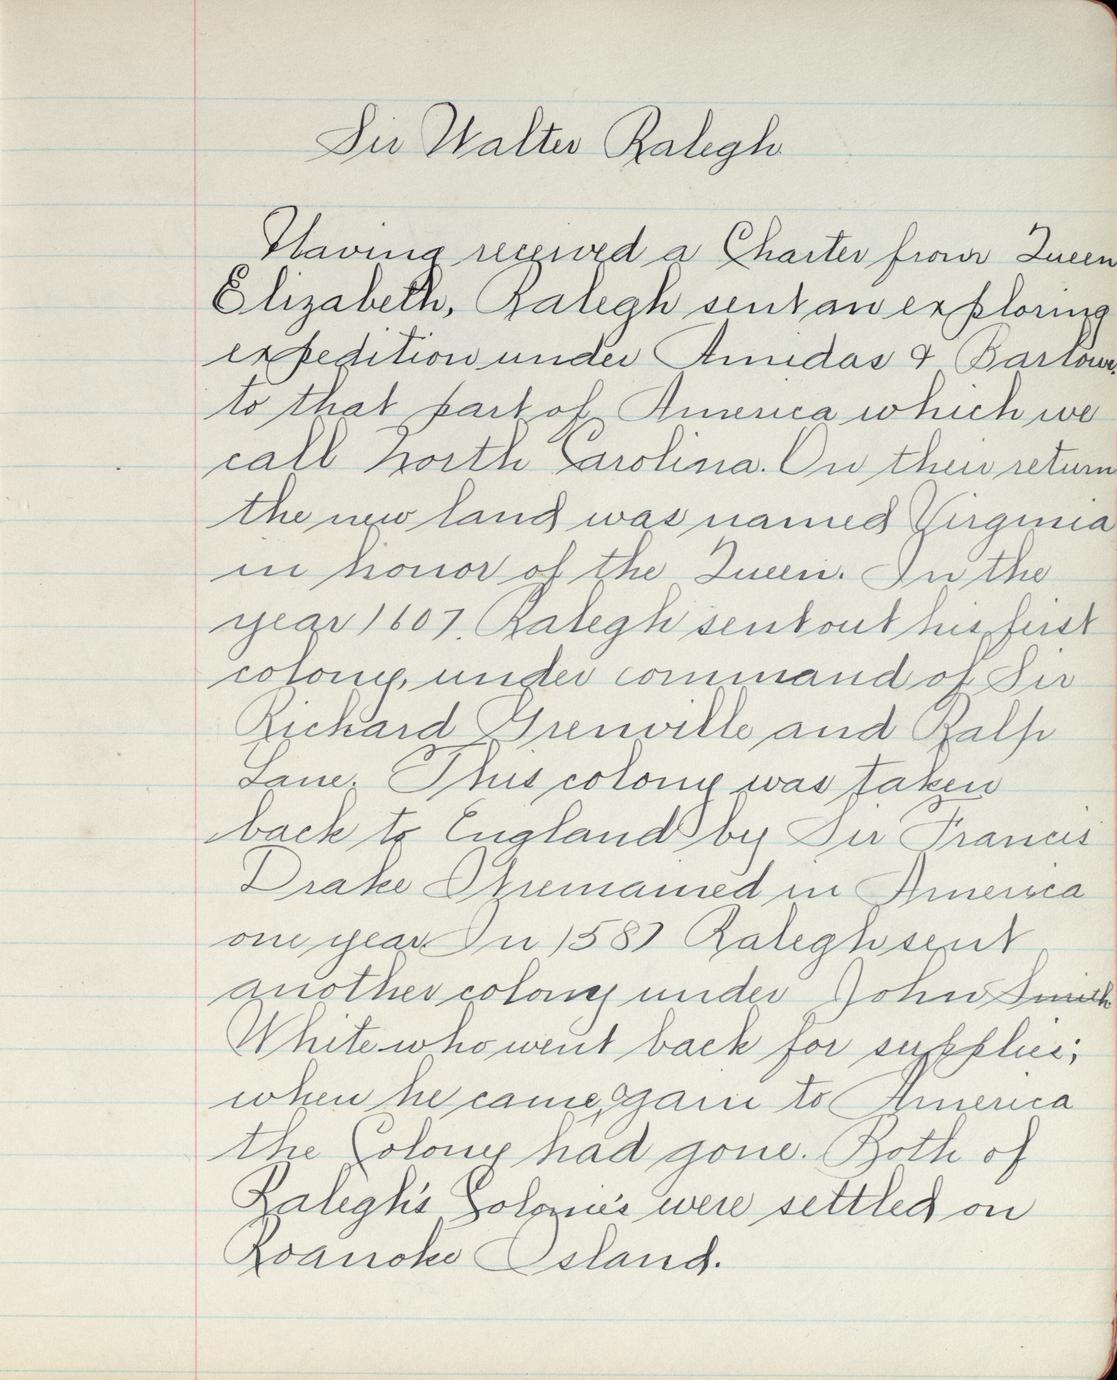 Sir Walter Ralegh
Having received a Charter from Queen
Elizabeth, Ralegh sent an exploring
expedition under Amidas & Barlowe,
to that part of America which we
call North Carolina. On their return
the new land was named Virginia
in honor of the Queen. In the
year 1607, Ralegh sent out his first
colony, under command of Sir
Richard Grenville and Ralp
Lane. This colony was taken
back to England by Sir Francis
Drake It remained in America
one year. In 1587 Ralegh sent
another colony under John Smith
White who went back for supplies;
when he came, again to America
the Colony had gone. Both of
Ralegh's Colonie's were settled on
Roanoke Island.